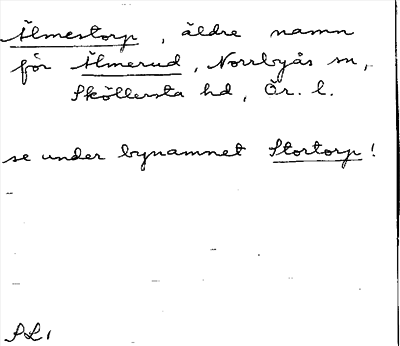 Älmestorp, äldre namn
för Älmerud, Norrbyås sn,
Sköllersta hd, Ör. l.
se under bynamnet Stortorp!